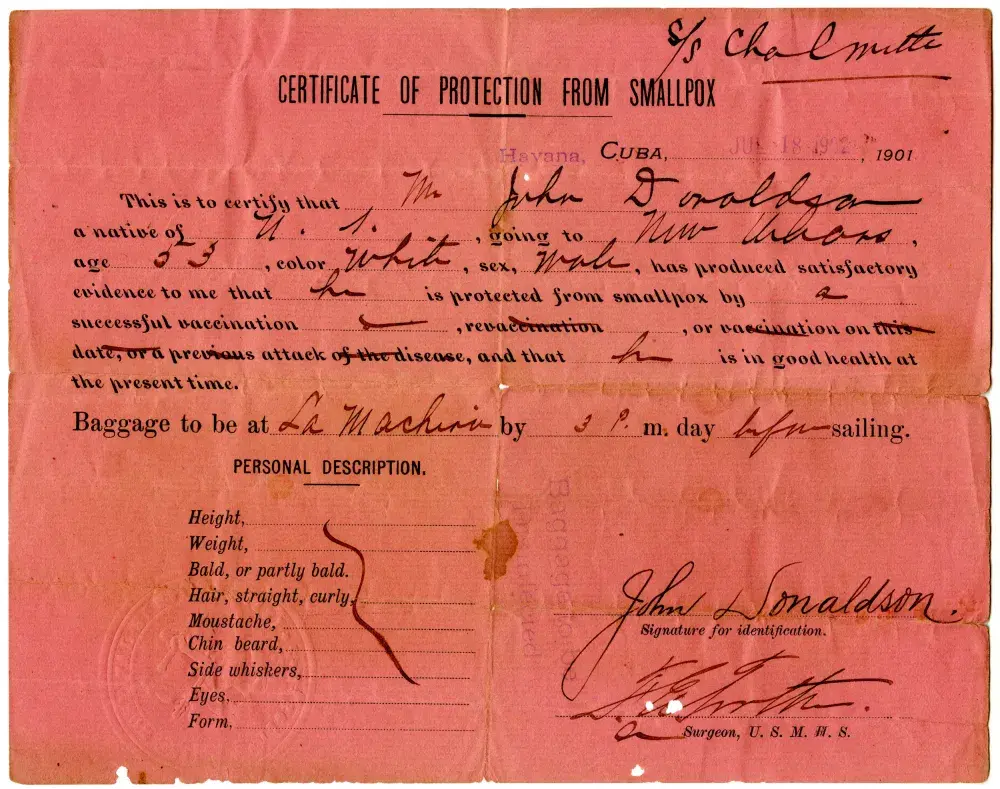 S/S Chalmette
CERTIFICATE OF PROTECTION FROM SMALLPOX
Havana, CUBA, JUL 18 1902, 1901
This is to certify that Mr John Donaldson
a native of U. S., going to New Orleans,
age 53, color White, sex, Male, has produced satisfactory
evidence to me that he is protected from smallpox by a
successful vaccination, revaccination, or vaccination on this
date, or a previous attack of the disease, and that he is in good health at
the present time.
Baggage to be at La Machina by 3 P. m. day before sailing.
PERSONAL DESCRIPTION.
Height,
Weight,
Bald, or partly bald.
Hair, straight, curly,
Moustache,
Chin beard,
Side whiskers,
Eyes,
Form,
Baggage to be
John Donaldson.
Signature for identification.
Surgeon, U. S. M. H. S.